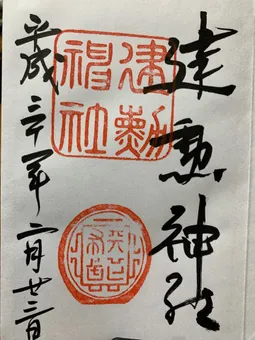 建勲神社
建勲神社
平成三十一年二月廿三日